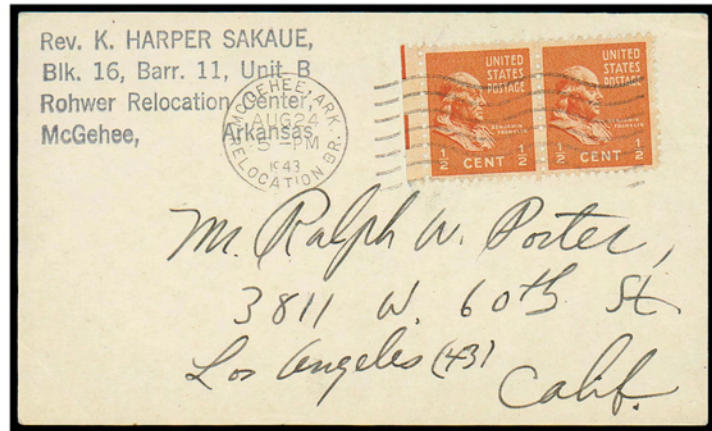 Rev. K. HARPER SAKAUE,
Blk. 16, Barr. 11, Unit B
Rohwer Relocation Center,
McGehee, Arkansas
McGEHEE, ARK.
AUG 24
5 - PM
1943
RELOCATION BR.
UNITED
STATES
POSTAGE
BENJAMIN
FRANKLIN
½ CENT ½
UNITED
STATES
POSTAGE
BENJAMIN
FRANKLIN
½ CENT ½
Mr. Ralph W. Porter,
3811 W. 60th St
Los Angeles (43)
Calif.